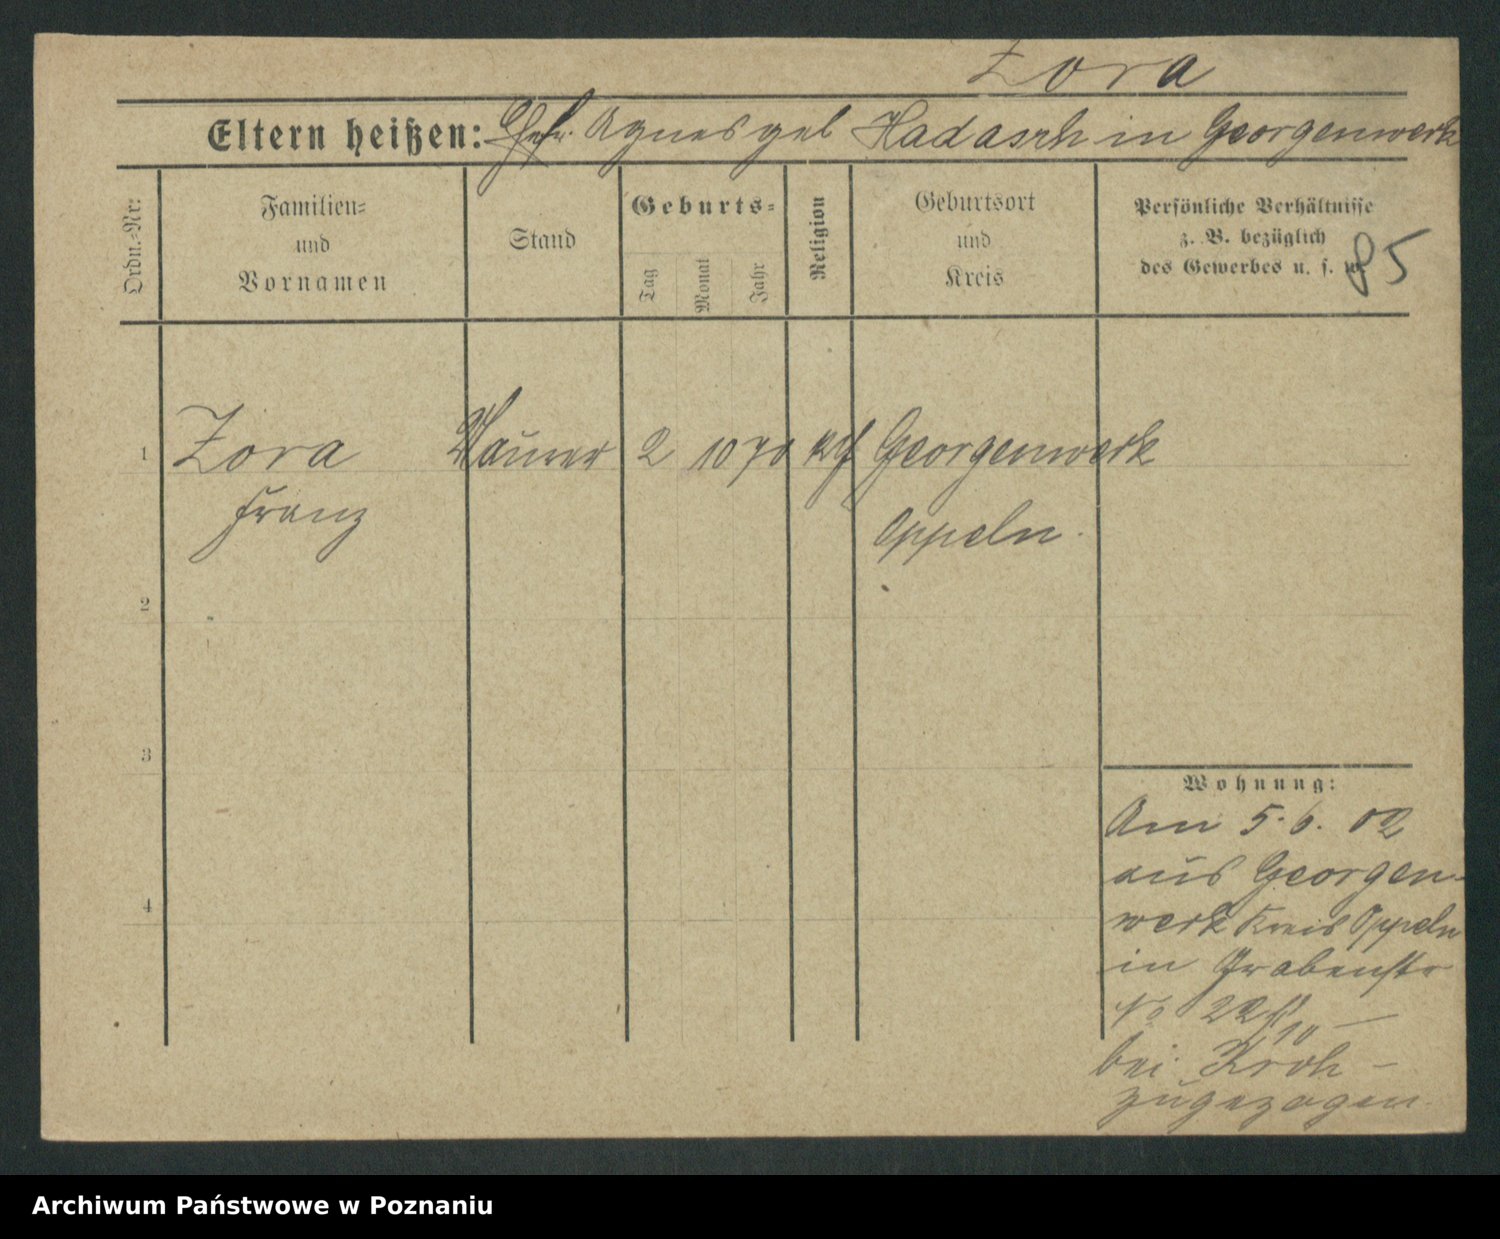 Zora
Eltern heißen: Ehefr. Agnes geb Hadasch in Georgenwerk
Ordn.-Nr:
Familien-
und
Vornamen
Stand
Geburts-
Tag
Monat
Jahr
Religion
Geburtsort
und
Kreis
Persönliche Verhältnisse
z. B. bezüglich
des Gewerbes u. s. w.
85
1 Zora Maurer 2 10 70 kth Georgenwerk
Franz Oppeln.
2
3
4
Wohnung:
Am 5.6. 02
aus Georgen-
werk Kreis Oppeln
in Grabenstr
No 22
bei Kroh -
zugezogen.
Archiwum Państwowe w Poznaniu